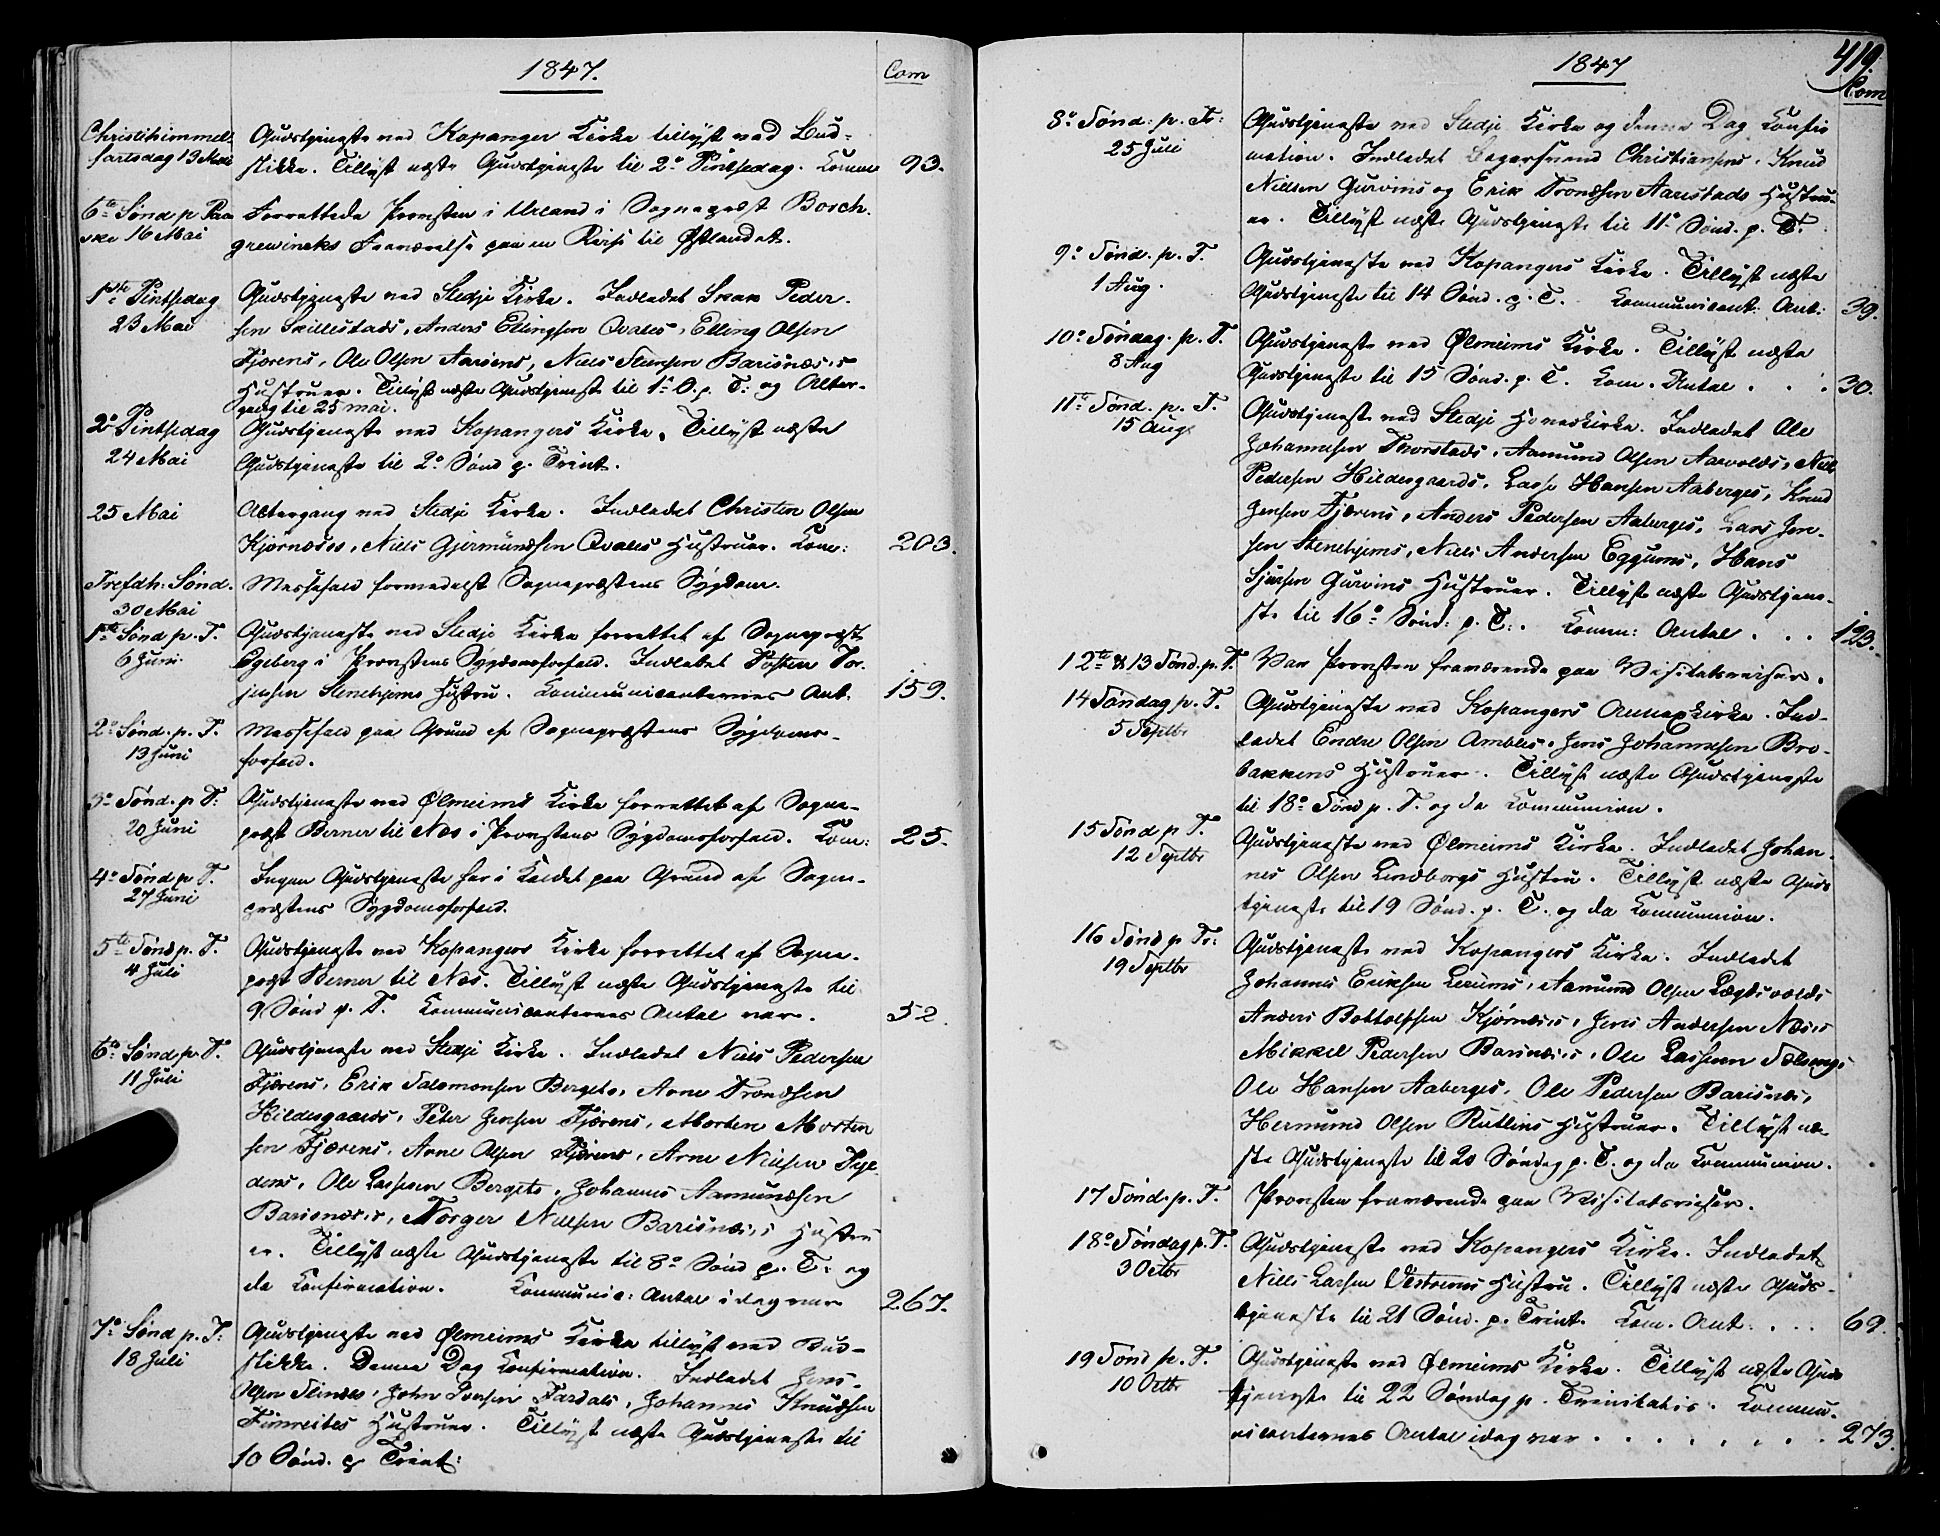 1847.
Com
Christihimmel-
fartsdag 13 Mai
Gudstjeneste ved Kopanger Kirke tillyst ved Bud-
stikke. Tillyst næste Gudstjeneste til 2den Pintsedag. Komm 93.
6te Sønd p Paa
ske 16 Mai
Forrettede Provsten i Urland i Sognepræst Borch-
grewincks Fraværelse paa en Reise til Østlandet.
1ste Pintsedag
23 Mai
Gudstjeneste ved Stedje Kirke. Indledet Isak Peder-
sen Skillestads, Anders Ellingsen Qvales, Elling Olsen
Fjærens, Ole Olsen Aarøens, Niels Steensen Barisnæses
Hustruer. Tillyst næste Gudstjeneste til 1ste S. p. T: og Alter-
gang til 25 mai.
2den Pintsedag
24 Mai
Gudstjeneste ved Kopangers Kirke. Tillyst næste
Gudstjeneste til 2den Sønd p. Trint.
25 Mai
Altergang ved Stedje Kirke. Indledet Christen Olsen
Kjørnæses, Niels Gjermundsen Qvales Hustruer. Kom: 203.
Trefdh: Sønd.
30 Mai
Messefald formedelst Sognepræstens Sygdom.
1ste Sønd p. T.
6 Juni
Gudstjeneste ved Stedje Kirke forrettet af Sognepræst
Egeberg i Provstens Sygdomsforfald. Indledet Tosten Tor-
jussen Stenehjems Hustru. Kommunicanternes Ant. 159.
2den Sønd. p. T.
13 Juni
Messefald paa Grund af Sognepræstens Sygdoms-
forfald.
3die Sønd. p T:
20 Juni
Gudstjeneste ved Ølmeims Kirke forrettet af Sogne-
præst Berner til Næs i Provstens Sygdomsforfald. Kom: 25.
4de Sønd p T.
27 Juni
Ingen Gudstjeneste her i Kaldet paa Grund af Sogne-
præstens Sygdomsforfald.
5te Sønd p. T.
4 Juli
Gudstjeneste ved Kopangers Kirke forrettet af Sogne-
præst Berner til Næs. Tillyst næste Gudstjeneste til
9 Sønd p. T. Kommunicanternes Antal var. 52.
6te Sønd. p. T.
11 Juli
Gudstjeneste ved Stedje Kirke. Indledet Niels Pedersen
Fjærens, Erik Salomonsen Bergets, Arne Trondsen
Hildesgaards, Peter Jensen Fjærens, Morten Morten
sen Fjærens, Arne Olsen Fjærens, Arne Nielsen
Ole Lassesen Bergets, Johannes Aamundsen
Barisnæses, Torger Nielsen Barisnæses Hustru
er. Tillyst næste Gudstjeneste til 8de Sønd p. T: og
da Konfirmation. Kommunic: Antal idag var 267.
7de Sønd p. T:
18 Juli
Gudstjeneste ved Ølmeims Kirke tillyst ved Bud-
stikke. Denne Dag Konfirmation. Indledet Jens
Olsen Slindes, John Iversen Fardals, Johannes Knudsen
Fimreites Hustruer. Tillyst næste Gudstjeneste til
10 Sønd. p Trint:
1847
419.
Com
8de Sønd: p. Tr:
25 Juli
Gudstjeneste ved Stedje Kirke og denne Dag Konfir
mation. Indledet Christiansens, Knud
Nielsen Gurvins og Erik Trondsen Aarestads Hustru-
er. Tillyst næste Gudstjeneste til 11te Sønd. p. T.
9de Sønd. p. T.
1 Aug.
Gudstjeneste ved Kopangers Kirke. Tillyst næste
Gudstjeneste til 14 Sønd. p. T. Kommunicant: Ant: 39.
10de Søndag. p. T.
8 Aug
Gudstjeneste ved Ølmeims Kirke. Tillyst næste
Gudstjeneste til 15 Sønd. p. T. Kom. Antal . . . 30.
11te Sønd. p. T.
15 Aug.
Gudstjeneste ved Stedje Hovedkirke. Indledet Ole
Johannesen Thorstads, Aamund Olsen Aarvolds, Niels
Pedersen Hildesgaards, Lasse Hansen Aaberges, Knud
Jensen Fjærens, Anders Pedersen Aaberges, Lars Jen-
sen Stenehjems, Niels Andersen Eggums, Hans
Sjursen Gurvins Hustruer. Tillyst næste Gudstjene-
ste til 16de Sønd: p. T:. Komm: Antal . . . 123.
12te & 13 Sønd. p. T.
Var Provsten fraværende paa Visitatsreiser.
14 Søndag p. T.
5 Septbr
Gudstjeneste ved Kopangers Annexkirke. Ind-
ledet Endre Olsen Ambles, Jens Johannesen Bro-
bakkens Hustruer. Tillyst næste Gudstjeneste
til 18de Sønd p. T. og da Kommunion.
15 Sønd p T.
12 Septbr
Gudstjeneste ved Ølmeims Kirke. Indledet Johan-
nes Olsen Lindborgs Hustru. Tillyst næste Guds
tjeneste til 19 Sønd. p. T. og da Kommunion.
16 Sønd p Tr:
19 Septbr
Gudstjeneste ved Kopangers Kirke. Indledet
Johannes Eriksen Lerums, Aamund Olsen Lægdsvolds
Anders Bottolfsen Kjørnæses, Jens Andersen Næses
Mikkel Pedersen Barisnæses, Ole Lassesen
Ole Hansen Aaberges, Ole Pedersen Barisnæs,
Hermund Olsen Rutlins Hustruer. Tillyst næ
ste Gudstjeneste til 20 Søndag p. T. og da Kommunion.
17 Sønd. p. T.
Provsten fraværende paa Visitatsreiser.
18de Søndag p. T.
3 Octbr
Gudstjeneste ved Kopangers Kirke. Indledet
Niels Larsen Vestrems Hustru. Tillyst næste Guds-
tjeneste til 21 Sønd. p. Trint. Kom. Ant: . . . 69.
19 Sønd p. T.
10 Octbr
Gudstjeneste ved Ølmeims Kirke. Tillyst næste Guds
tjeneste til 22 Søndag p. Trinitatis. Kommu-
nicanternes Antal idag var . . . . . . . . 273.